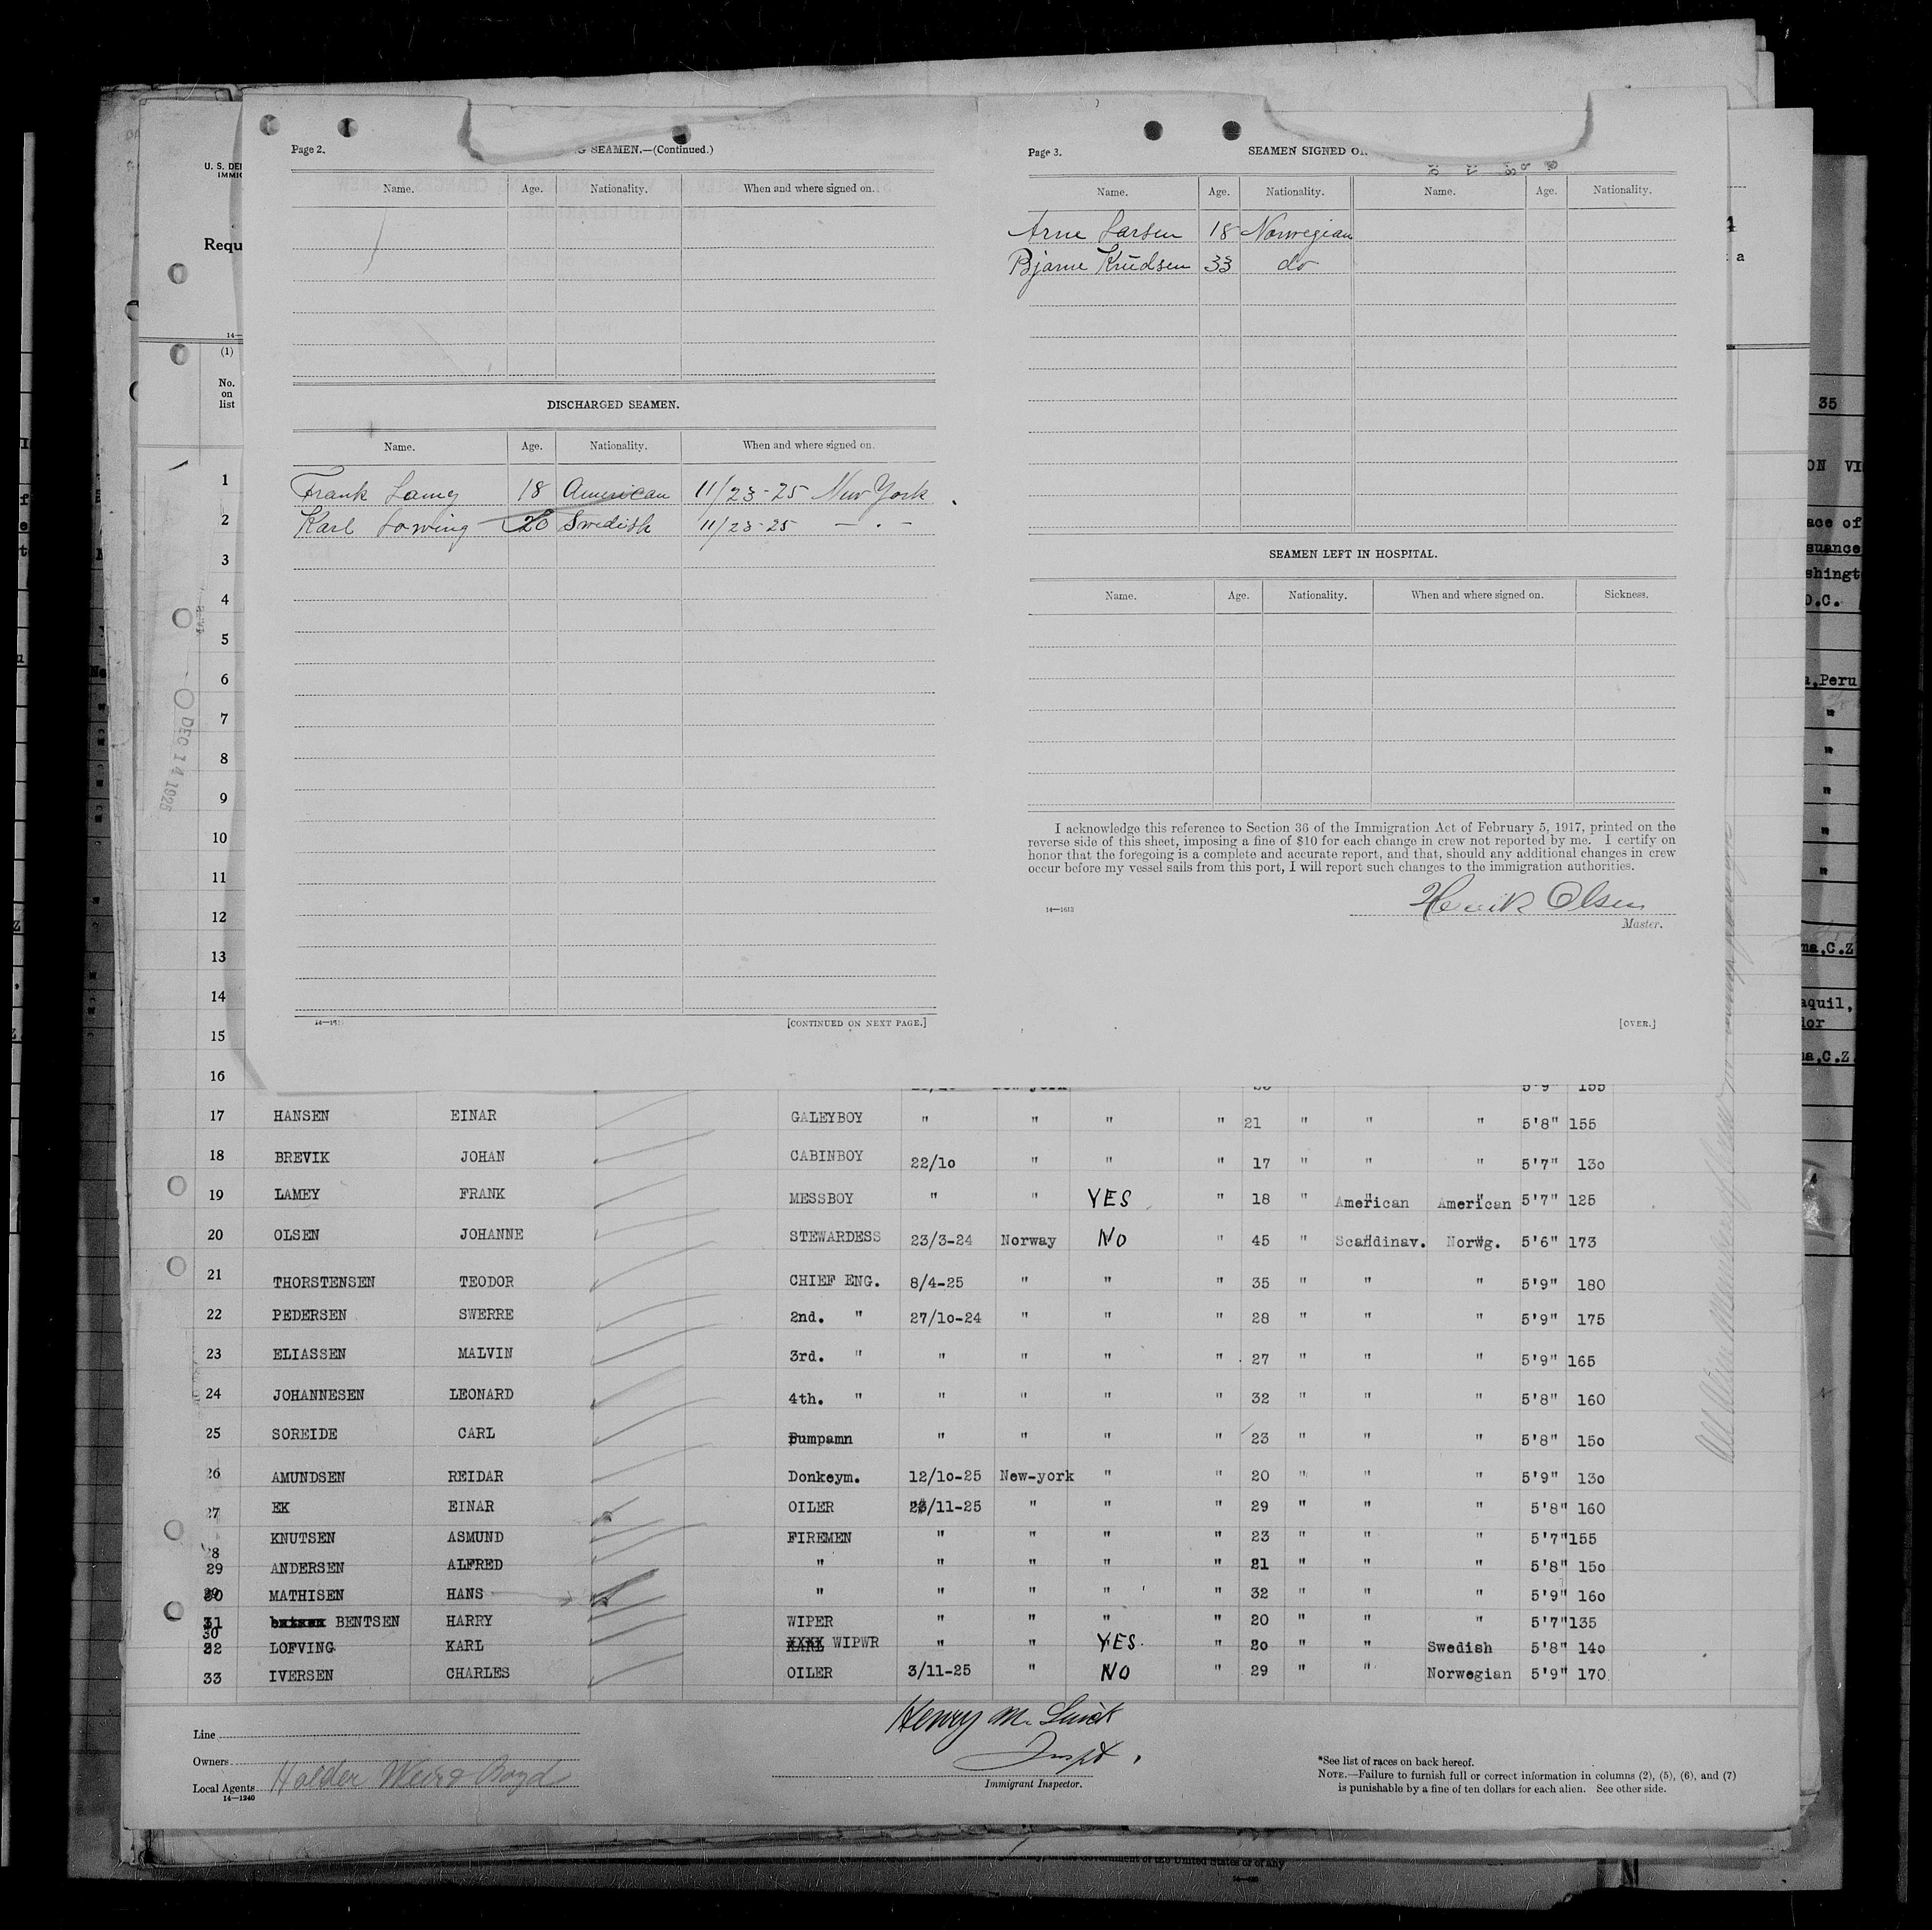 Page 2.
G SEAMEN.—(Continued.)
Name. Age. Nationality. When and where signed on.
DISCHARGED SEAMEN.
Name. Age. Nationality. When and where signed on.
Frank Lamy 18 American 11/23-25 New York
Karl Lowing 20 Swedish 11/23-25 — . —
[CONTINUED ON NEXT PAGE.]
Page 3.
SEAMEN SIGNED O
Name. Age. Nationality. Name. Age. Nationality.
Arne Larsen 18 Norwegian
Bjarne Knudsen 33 do
SEAMEN LEFT IN HOSPITAL.
Name. Age. Nationality. When and where signed on. Sickness.
I acknowledge this reference to Section 36 of the Immigration Act of February 5, 1917, printed on the
reverse side of this sheet, imposing a fine of $10 for each change in crew not reported by me. I certify on
honor that the foregoing is a complete and accurate report, and that, should any additional changes in crew
occur before my vessel sails from this port, I will report such changes to the immigration authorities.
14—1613
Henrik Olsen
Master.
[OVER.]
U. S. DE
IMMIG
Requ
14—
(1)
No.
on
list
1
2
3
4
5
6
7
8
9
10
11
12
13
14
15
16
DEC 14 1925
17 HANSEN EINAR GALEYBOY " " " " 21 " " " 5'8" 155
18 BREVIK JOHAN CABINBOY 22/10 " " " 17 " " " 5'7" 130
19 LAMEY FRANK MESSBOY " " YES " 18 " American American 5'7" 125
20 OLSEN JOHANNE STEWARDESS 23/3-24 Norway NO " 45 " Scandinav. Norwg. 5'6" 173
21 THORSTENSEN TEODOR CHIEF ENG. 8/4-25 " " " 35 " " " 5'9" 180
22 PEDERSEN SWERRE 2nd. " 27/10-24 " " " 28 " " " 5'9" 175
23 ELIASSEN MALVIN 3rd. " " " " " 27 " " " 5'9" 165
24 JOHANNESEN LEONARD 4th. " " " " " 32 " " " 5'8" 160
25 SOREIDE CARL Pumpamn " " " " 23 " " " 5'8" 150
26 AMUNDSEN REIDAR Donkeym. 12/10-25 New-york " " 20 " " " 5'9" 130
27 EK EINAR OILER 23/11-25 " " " 29 " " " 5'8" 160
28 KNUTSEN ASMUND FIREMEN " " " " 23 " " " 5'7" 155
29 ANDERSEN ALFRED " " " " " 21 " " " 5'8" 150
30 MATHISEN HANS " " " " " 32 " " " 5'9" 160
31 BENTSEN HARRY WIPER " " " " 20 " " " 5'7" 135
32 LOFVING KARL WIPWR " " YES. " 20 " " Swedish 5'8" 140
33 IVERSEN CHARLES OILER 3/11-25 " NO " 29 " " Norwegian 5'9" 170
Line
Owners
Local Agents Halder Weir & Boyd
14—1240
Henry M.
Inspt.
Immigrant Inspector.
*See list of races on back hereof.
NOTE.—Failure to furnish full or correct information in columns (2), (5), (6), and (7)
is punishable by a fine of ten dollars for each alien. See other side.
35
ON VI
ace of
suance
shingt
D.C.
a,Peru
ma,C.Z
aquil,
dor
ma,C.Z